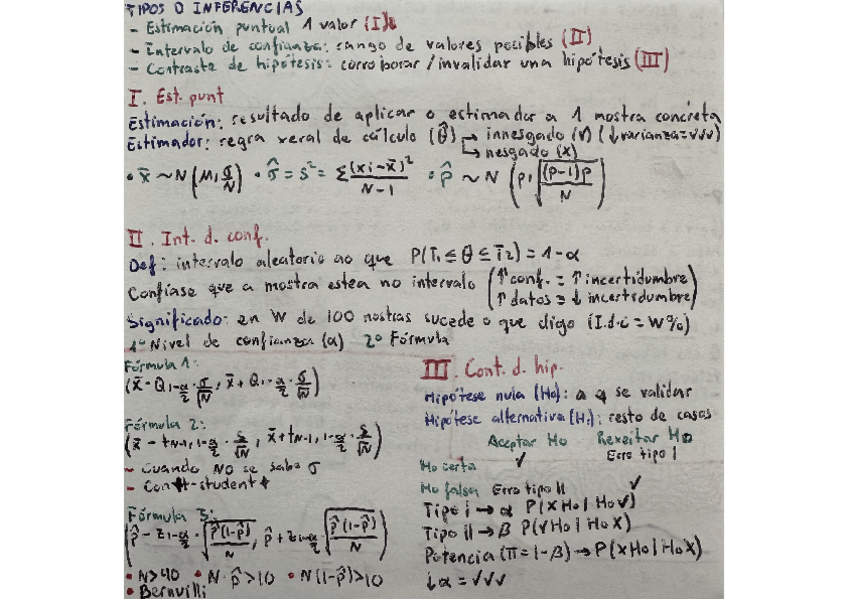 TIPOS D INFERENCIAS
- Estimación puntual 1 valor (I)
- Intervalo de confianza: rango de valores posibles (II)
- Contraste de hipótesis: corroborar / invalidar una hipótesis (III)
I. Est. punt
Estimación: resultado de aplicar o estimador a 1 mostra concreta
Estimador: regra xeral de cálculo (θ̂) → innesgado (✓) (↓varianza=✓✓✓)
↳ nesgado (X)
• x̄ ~ N(M, σ/N) • σ̂ = S² = Σ(xi-x̄)²/N-1 • p̂ ~ N(p, √((p-1)p/N))
II. Int. d. conf.
Def: intervalo aleatorio ao que P(T1 ≤ θ ≤ T2) = 1-α
Confíase que a mostra estea no intervalo (↑conf. = ↑incertidumbre)
(↑datos = ↓ incertidumbre)
Significado: en W de 100 mostras sucede o que digo (I.d.c = W%)
1º Nivel de confianza (α) 2º Fórmula
Fórmula 1:
(x̄ - Q1-α/2 · σ/√N, x̄ + Q1-α/2 · σ/√N)
Fórmula 2:
(x̄ - tN-1, 1-α/2 · S/√N, x̄ + tN-1, 1-α/2 · S/√N)
- Cuando NO se sabe σ
- Con t-student
Fórmula 3:
(p̂ - Z1-α/2 · √(p̂(1-p̂)/N), p̂ + Z1-α/2 · √(p̂(1-p̂)/N))
• N>40 • N·p̂>10 • N(1-p̂)>10
• Bernuilli
III. Cont. d. hip.
Hipótese nula (Ho): a q se validar
Hipótese alternativa (H1): resto de casos
Aceptar Ho Rexeitar Ho
Ho certa ✓ Erro tipo I
Ho falsa Erro tipo II ✓
Tipo I → α P(X Ho | Ho V)
Tipo II → β P(V Ho | Ho X)
Potencia (π = 1-β) → P(X Ho | Ho X)
↓α = ✓✓✓